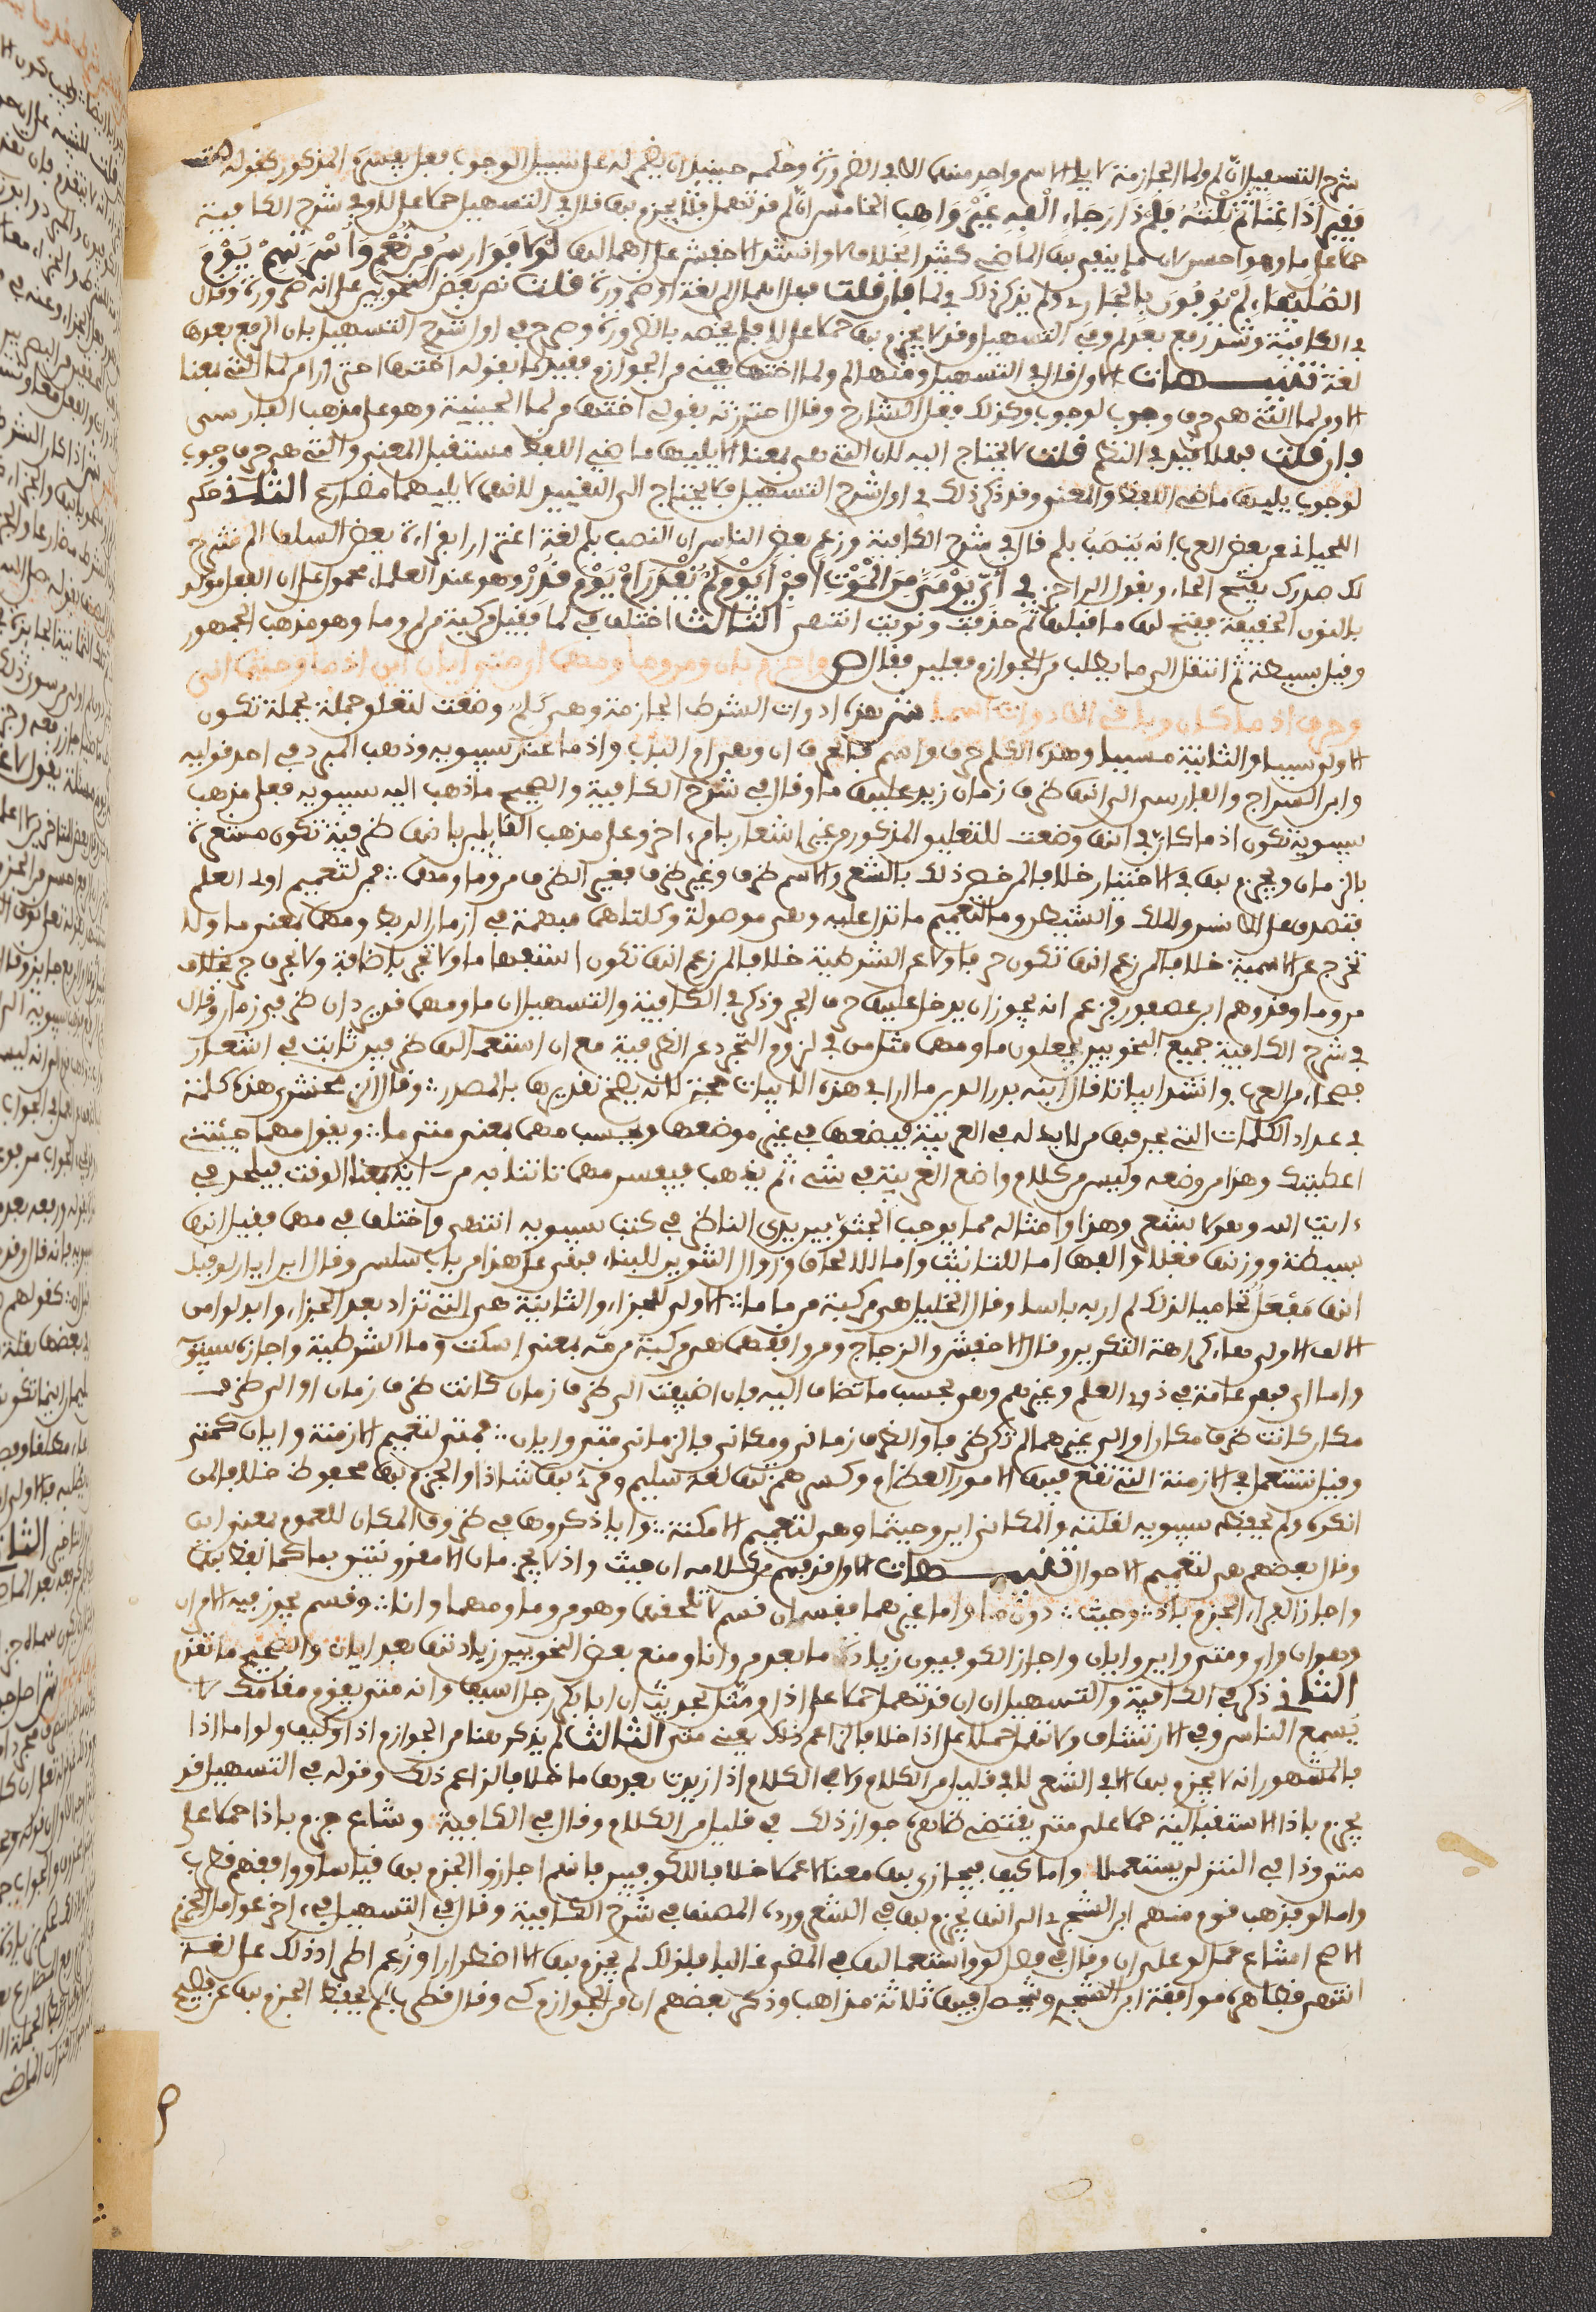 شرح التسهيل ان لم ولما الجازمة لا يلي الاسم واحد منهما الا في الضرورة وحكمه حينئذ ان يضمر له على سبيل الوجوب فعل يفسره المذكور كقوله
فقيرا اذا غنا ثم نلته فلم ذا رجاء القه غير واهب الخامس ان لم قد تهمل فلا يجزم بها قال في التسهيل حملا على لا وفي شرح الكافية
حملا على ما وهو احسن لان ما ينفى بها الماضي كثيرا بخلاف لا وانشد الاخفش على اهمالها لولا فوارس من نعم واسرتهم يوم
الصليفاء لم يوفون بالجار ولم يذكر ذلك في لما فان قلت فهل اهمال لم لغة او ضرورة قلت نص بعض النحويين على انه ضرورة وقال
في الكافية وشذ رفع بعد لم وفي التسهيل وقد لا يجزم بها حملا على لا فلم يخصه بالضرورة وصرح في اول شرح التسهيل بان الرفع بعدها
لغة تنبيهات الاول قال في التسهيل ومنها لم ولما اختها يعني من الجوازم فقيد لما بقوله اختها احترازا من لما التي بمعنا
الا ومن لما التي هي حرف وجوب لوجوب وكذلك فعل الشارح وقال احترزت بقولي اختها من لما الحينية وهو على مذهب الفارسي
فان قلت فهلا قيد في النظم قلت لا يحتاج اليه لان التي بمعنا الا يليها ماضي اللفظ مستقبل المعنى والتي هي حرف وجوب
لوجوب يليها ماضي اللفظ والمعنى وقد ذكر ذلك في اول شرح التسهيل فلا يحتاج الى التقييد لانها لا يليهما مضارع الثاني حكى
اللحياني عن بعض العرب انه ينصب بلم قال في شرح الكافية وزعم بعض الناس ان النصب بلم لغة اغترارا بقراءة بعض السلف الم نشرح
لك صدرك بفتح الحاء وبقول الراجز في اي يومي من الموت افر ايوم لم يقدر ام يوم قدر وهو عند العلماء محمول على ان الفعل موكد
بالنون الخفيفة ففتح لها ما قبلها ثم حذفت ونويت انتهى الثالث اختلف في لما فقيل مركبة من لم وما وهو مذهب الجمهور
وقيل بسيطة ثم انتقل الى ما يطلب من الجوازم فعلين فقال ص واجزم بان ومن وما ومهما اي متى ايان اين اذ ما وحيثما انى
وحرف اذ ما كان وباقي الادوات اسما ش هذه ادوات الشرط الجازمة وهي كلم وضعت لتعليق جملة بجملة تكون
الاولى سببا والثانية مسببا وهذه الكلم حرف واسم فالحرف ان وهي ام الباب واذ ما عند سيبويه وذهب المبرد في احد قوليه
وابن السراج والفارسي الى انها ظرف زمان زيد عليها ما وقال في شرح الكافية والصحيح ما ذهب اليه سيبويه فعلى مذهب
سيبويه تكون اذ ما كان في انها وضعت للتعليق المذكور من غير اشعار بامر اخر وعلى مذهب القائلين بانها ظرفية تكون مشعرة
بالزمان ويجزم بها في الاختيار خلافا لمن خص ذلك بالشعر والاسم ظرف وغير ظرف فغير الظرف من وما ومهما فمن لتعميم اولي العلم
فتصدق على الانس والملك والشيطان وما لتعميم ما تدل عليه وهي موصولة وكلتاهما مبهمة في ازمان الربط ومهما بمعنى ما ولا
تخرج عن الاسمية خلافا لمن زعم انها تكون حرفا ولا عن الشرطية خلافا لمن زعم انها تكون استفهاما ولا تجر باضافة ولا بحرف جر بخلاف
من وما وقد وهم ابن عصفور فزعم انه يجوز ان يدخل عليها حرف الجر وذكر في الكافية والتسهيل ان ما ومهما قد يردان ظرفي زمان وقال
في شرح الكافية جميع النحويين يجعلون ما ومهما مثل من في لزوم التجرد عن الظرفية مع ان استعمالها ظرفين ثابت في اشعار
فصحاء العرب وانشد ابياتا قال ابنه بدر الدين ما ارى في هذه الابيات حجة لانه يصح تقديرها بالمصدر وقال الزمخشري هذه كلمة
في عداد الكلمات التي يحرفها من لا يد له في العربية فيضعها في غير موضعها ويحسب مهما بمعنى متى ما ويقول مهما جئتني
اعطيتك وهذا من وضعه وليس من كلام واضع العربية في شيء ثم يذهب فيفسر مهما تاتنا به من اية بمعنا الوقت فيلحد في
ءايت الله وهو لا يشعر وهذا وامثاله مما يوجب الجثو بين يدي الناظر في كتب سيبويه انتهى واختلف في مهما فقيل انها
بسيطة ووزنها فعلى والفها اما للتانيث واما للالحاق وزوال التنوين للبناء فبقي على هذا من باب سلس وقال ابن اياز لو قيل
انها مفعل تحاميا لذلك لم ار به باسا وقال الخليل هي مركبة من ما ما الاولى للجزاء والثانية هي التي تزاد بعد الجزاء وابدلوا من
الالف الاولى هاء كراهة التكرير وقال الاخفش والزجاج ومن وافقهما هي مركبة من مه بمعنى اسكت وما الشرطية واجازه سيبويه
واما اي فهي عامة في ذوي العلم وغيرهم وهي بحسب ما تضاف اليه فان اضيفت الى ظرف زمان كانت ظرف زمان او الى ظرف
مكان كانت ظرف مكان او الى غيرهما لم تكن ظرفا والظرف زماني ومكاني فالزماني متى وايان فمتى لتعميم الازمنة وايان كمتى
وقيل تستعمل في الازمنة التي تقع فيها الامور العظام وكسر همزتها لغة سليم وقرئ بها شاذا والجزم بها محفوظ خلافا لمن
انكره ولم يحفظه سيبويه لقلته والمكاني اين وحيثما وهي لتعميم الامكنة وانى ذكروها في ظروف المكان للعموم بمعنى اين
وقال بعضهم هي لتعميم الاحوال تنبيهات الاول قد فهم من كلامه ان حيث واذ لا يجزمان الا مقرونتين بما كما لفظ بها
واجاز الفراء الجزم باذ وحيث دون ما واما غيرهما فقسمان قسم لا تلحقه ما وهو من وما ومهما وانا وقسم يجوز فيه الامران
وهو ان واي ومتى واين وايان واجاز الكوفيون زيادة ما بعد من وانا ومنع بعض النحويين زيادتها بعد ايان والصحيح ما تقدم
الثاني ذكر في الكافية والتسهيل ان ان قد تهمل حملا على لو ومتى لحديث ان ابا بكر رجل اسيف وانه متى يقوم مقامك لا
يسمع الناس وفي الارتشاف ولا تهمل حملا على اذا خلافا لمن زعم ذلك يعني متى الثالث لم يذكر هنا من الجوازم اذا وكيف ولو اما اذا
فالمشهور انه لا يجزم بها الا في الشعر لا في قليل من الكلام ولا في الكلام اذا زيدت بعدها ما خلافا لزاعم ذلك وقوله في التسهيل قد
يجزم باذا الاستقبالية حملا على متى يقتضي ظاهره جواز ذلك في قليل من الكلام وقال في الكافية وشاع جزم باذا حملا على
متى وذا في النثر لن يستعملا واما كيف فيجازى بها معنا لا عملا خلافا للكوفيين فانهم اجازوا الجزم بها قياسا ووافقهم قطرب
واما لو فذهب قوم منهم ابن الشجري الى انها يجزم بها في الشعر ورده المصنف في شرح الكافية وقال في التسهيل في ءاخر عوامل الجزم
الاصح امتناع حمل لو على ان وقال في فصل لو واستعمالها في المضي غالبا فلذلك لم يجزم بها الا اضطرارا وزعم اطراد ذلك على لغة
انتهى فظاهره موافقة ابن الشجري وتحصل فيها ثلاثة مذاهب وذكر بعضهم ان من الجوازم كي وقال قطرب لم يحفظ الجزم بها عن فصيح